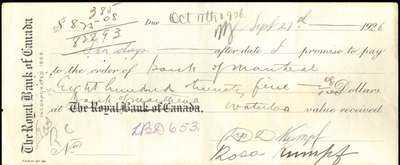 385
$ 875.08 Due Oct 11th 1926
882.93 Sept 21st 1926
Ten days after date I promise to pay
to the order of Bank of Montreal
Eight hundred Seventy five 08/100 Dollars
at The Royal Bank of Canada.
Waterloo value received
No. LBD 653.
Rosa Kumpf
The Royal Bank of Canada